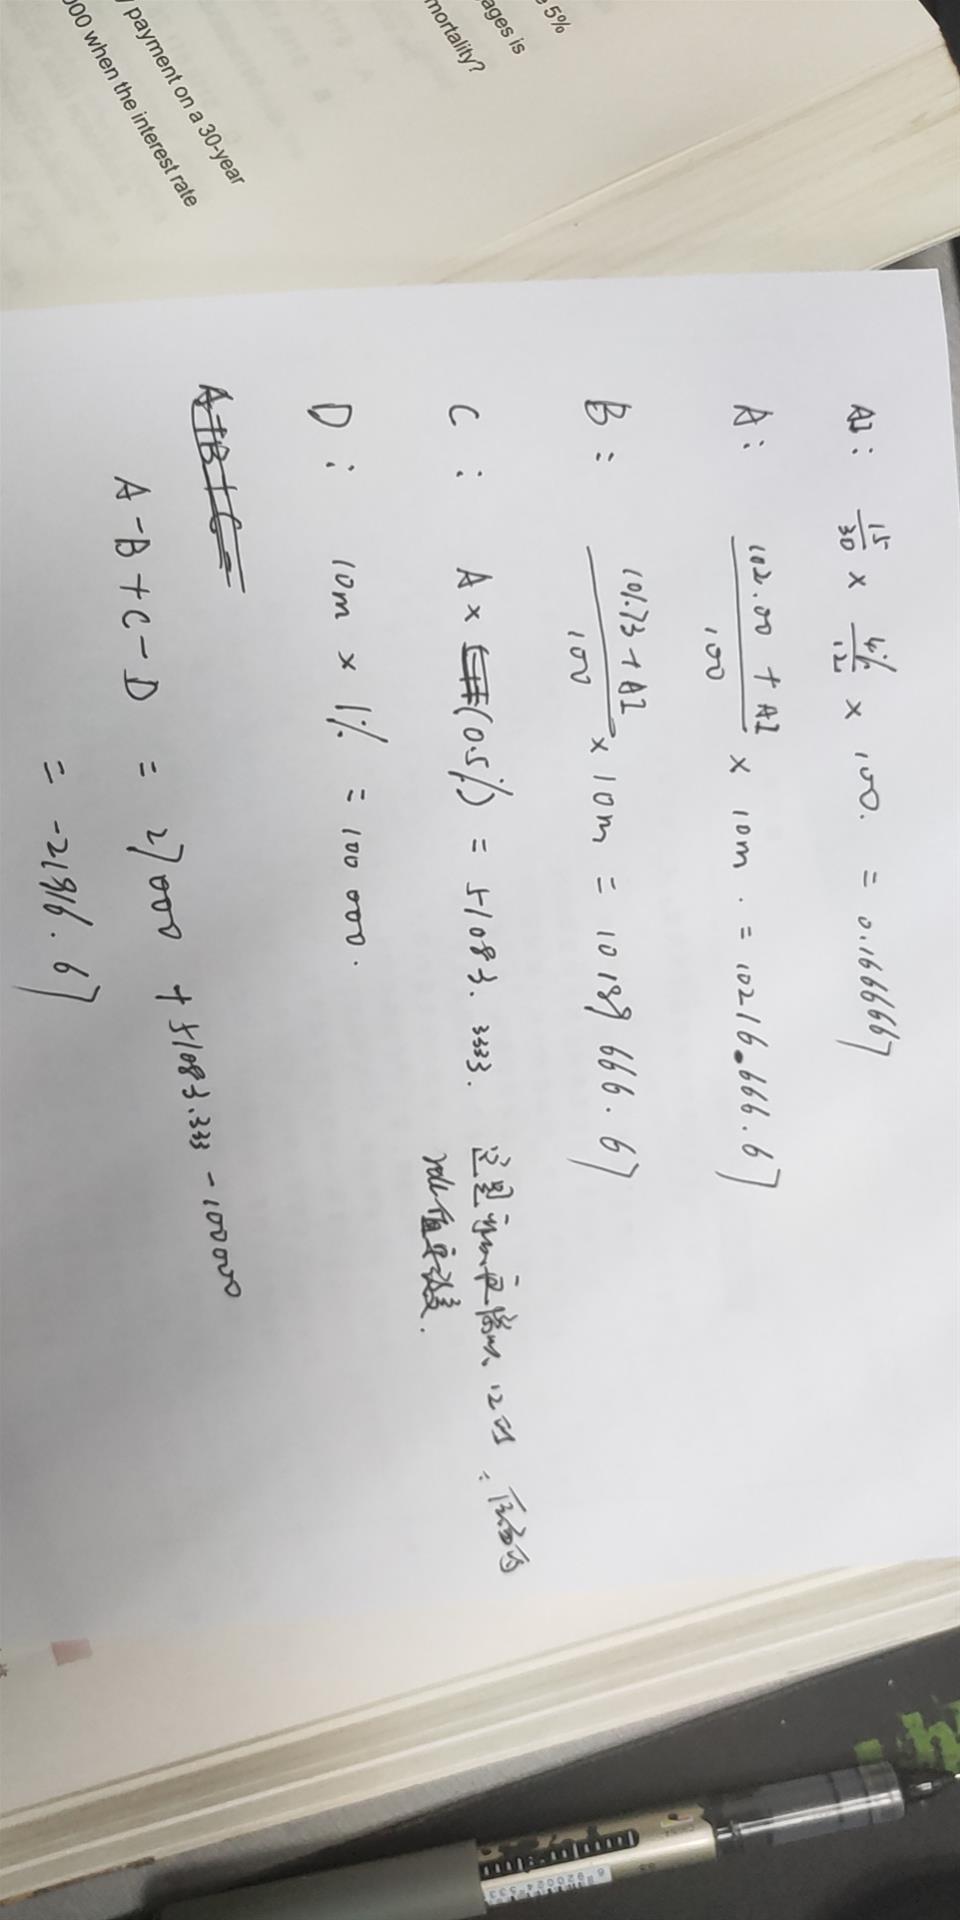 e 5%
ages is
mortality?
payment on a 30-year
000 when the interest rate
AI: 15/30 × 4%/12 × 100. = 0.1666667
A: (102.00 + AI)/100 × 10m. = 10216.666.67
B: (101.73 + AI)/100 × 10m = 10189 666.67
C: A × (0.5%) = 51083.3333.
D: 10m × 1% = 100 000.
A+B+C=
A-B+C-D = 27000 + 51083.333 - 100000
= -21916.67